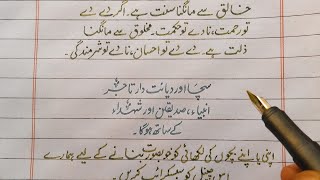 خالق سے مانگنا سنت ہے۔ اگر دے دے
تو رحمت، نا دے تو حکمت۔ مخلوق سے مانگنا
ذلت ہے۔ دے دے تو احسان، نا دے تو شرمندگی۔
سچا اور دیانت دار تاجر
انبیاء، صدیقین اور شہداء
کے ساتھ ہوگا۔
اپنی یا اپنے بچوں کی لکھائی کو خوبصورت بنانے کے لیے ہمارے
اس چینل کو سبسکرائب کریں۔